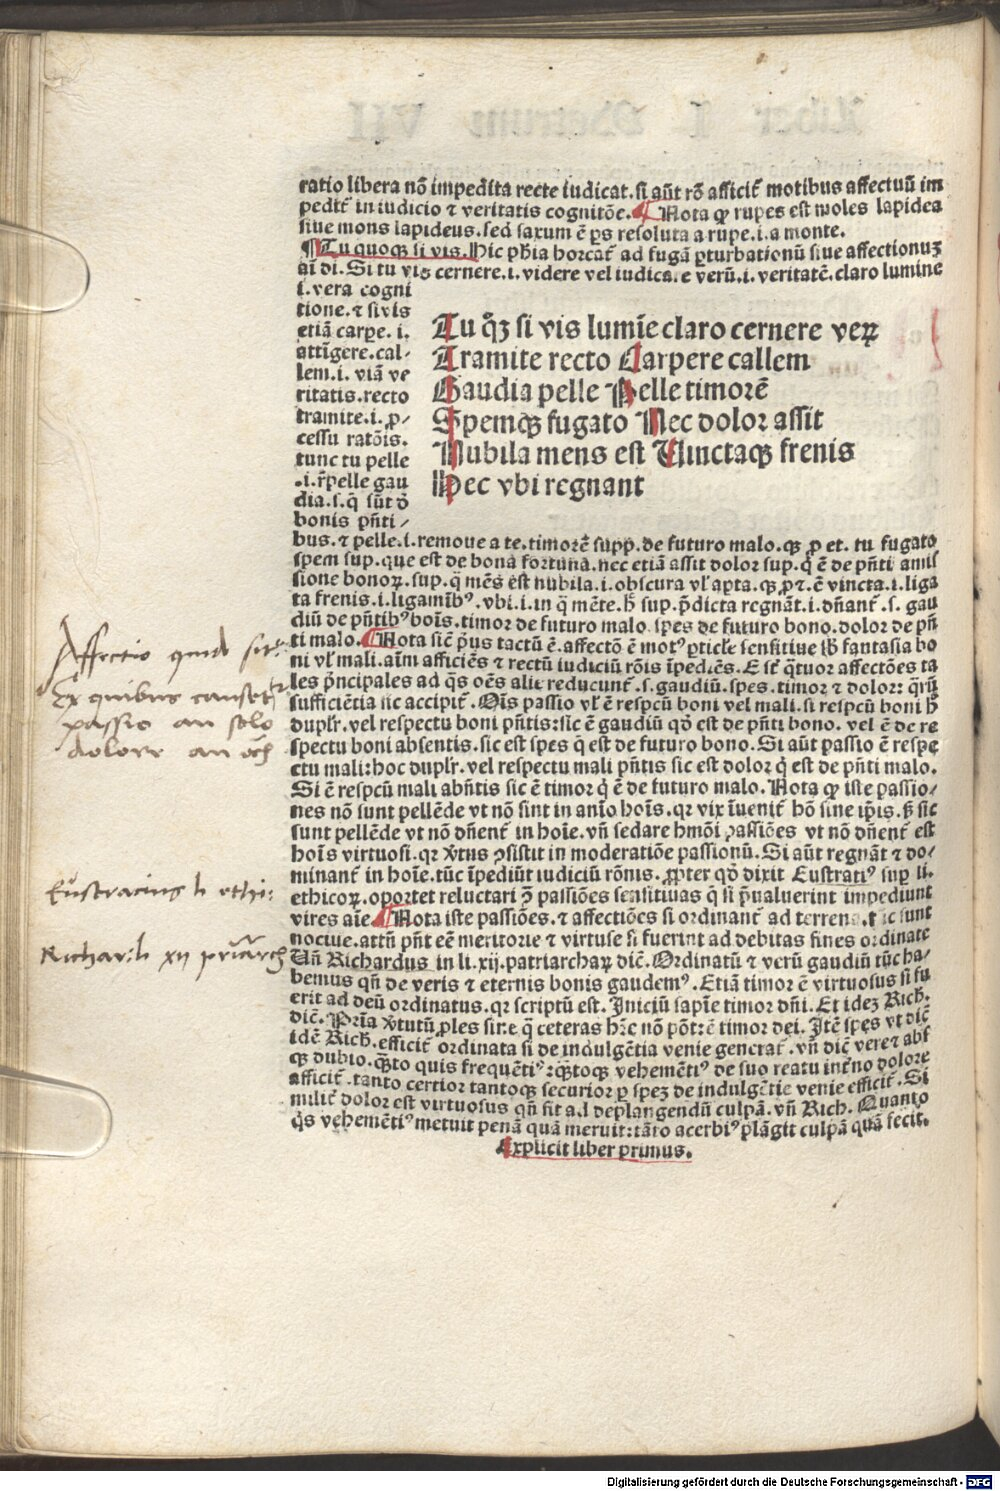 ratio libera nō impedita recte iudicat. si aūt rō afficit᷑ motibus affectuū im
pedit᷑ in iudicio ⁊ veritatis cognitōe. ¶ Nota ꝙ rupes est moles lapidea
siue mons lapideus. sed saxum ē ꝑs resoluta a rupe. i. a monte.
¶ Tu quoqꝫ si vis. Hic ph̄ia hortat᷑ ad fugā ꝑturbationū siue affectionuꝫ
aī di. Si tu vis cernere. i. videre vel iudicare verū. i. veritatē. claro lumine
i. vera cogni
tione. ⁊ si vis
etiā carpe. i.
attīgere. cal-
lem. i. viā ve
ritatis. recto
tramite. i. ꝓ-
cessu ratōis.
tunc tu pelle
.i. r̄pelle gau
dia. s. q̄ sūt ō
bonis pn̄ti/
Tu qͦꝫ si vis lumīe claro cernere veꝝ
Tramite recto Carpere callem
Gaudia pelle Pelle timorē
Spemqꝫ fugato Nec dolor assit
Nubila mens est Uinctaqꝫ frenis
Hec vbi regnant
bus. ⁊ pelle. i. remoue a te. timorē supp. de futuro malo. qꝫ ꝓ et. tu fugato
spem sup. que est de bona fortuna. nec etiā assit dolor sup. q̇ ē de pn̄ti amis
sione bonoꝝ. sup. q̄ mēs est nubila. i. obscura vl' aꝑta. qꝫ ꝓ ⁊. ē vincta. i. liga
ta frenis. i. ligamībꝰ. vbi. i. in q̄ mēte. h̄ sup. p̄dicta regnāt. i. dn̄ant᷑. s. gau
diū de pn̄tibꝰ bois. timor de futuro malo. spes de futuro bono. dolor de pn̄
ti malo. ¶ Nota sic̄ pͥus tactū ē. affectō ē motꝰ ꝑticl'e sensitiue sb̄ fantasia bo
ni vl' mali. aīm afficiēs ⁊ rectū iudiciū rōis īpediēs. E st᷑ qͣtuor affectōes ta
les pͥncipales ad qͣs oēs alie reducunt᷑. s. gaudiū. spes. timor ⁊ dolor: qͣrū
sufficiētia sic accipit᷑. Oīs passio vl' ē respcū boni vel mali. si respcū boni h̄
duplr̄. vel respectu boni pn̄tis: sic ē gaudiū qd̄ est de pn̄ti bono. vel ē de re
spectu boni absentis. sic est spes q̄ est de futuro bono. Si aūt passio ē respe
ctu mali: hoc duplr̄. vel respectu mali pn̄tis sic est dolor q̇ est de pn̄ti malo.
Si ē respcū mali abn̄tis sic ē timor q̇ ē de futuro malo. Nota ꝙ iste passio/
nes nō sunt pellēde vt nō sint in aīo hoīs. qr vix īuenit᷑ hō sine ip̄is. sꝫ sic
sunt pellēde vt nō dn̄ent᷑ in hoīe. vn̄ sedare hmōi passiōes vt nō dn̄ent᷑ est
hoīs virtuosi. qr v̓tus ꝯsistit in moderatiōe passionū. Si aūt regnāt ⁊ do/
minant᷑ in hoīe. tūc īpediūt iudiciū rōnis. ꝓpter qd̄ dixit Eustratiꝰ sup li.
ethicoꝝ. oportet reluctari ꝯ passiōes sensitiuas q̄ si p̄ualuerint impediunt
vires aīe. ¶ Nota iste passiōes. ⁊ affectiōes si ordinant᷑ ad terrena. sic sunt
nociue. attn̄ pn̄t eē meritorie ⁊ virtuose si fuerint ad debitas fines ordinate
Un̄ Richardus in li. xij. patriarchaꝝ dic̄. Ordinatū ⁊ verū gaudiū tūc ha-
bemus qn̄ de veris ⁊ eternis bonis gaudemꝰ. Etiā timor ē virtuosus si fu
erit ad deū ordinatus. qr scriptū est. Iniciū sapīe timor dn̄i. Et ideꝫ Rich.
dic̄. Pria v̓tutū ꝓles sine q̄ ceteras hr̄e nō pōt: ē timor dei. Itē spes vt dic̄
idē Rich. efficit᷑ ordinata si de indulgētia venie generat᷑. vn̄ dic̄ vere ⁊ abs
qꝫ dubio. qͣto quis frequētiꝰ: qͣtoqꝫ vehemētiꝰ de suo reatu int̄no dolore
afficit᷑. tanto certior tantoqꝫ securior ꝑ speꝫ de indulgētie venie efficit᷑. Si
milit᷑ dolor est virtuosus qn̄ fit ad deplangendū culpā. vn̄ Rich. Quanto
qͥs vehemētiꝰ metuit penā quā meruit: tāto acerbiꝰ plāgit culpā quā fecit.
Explicit liber primus.
Affectio quid sit
Ex quibus causet᷑
passio an solo
dolore an
Eustracius li ethi:
Richar: li xij priarch
Digitalisierung gefördert durch die Deutsche Forschungsgemeinschaft - DFG